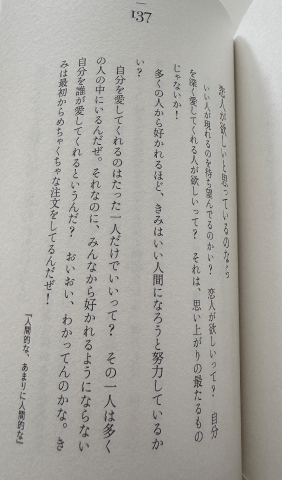 137
恋人が欲しいと思っているのなら
いい人が現れるのを待ち望んでるのかい? 恋人が欲しいって? 自分
を深く愛してくれる人が欲しいって? それは、思い上がりの最たるもの
じゃないか!
多くの人から好かれるほど、きみはいい人間になろうと努力しているか
い?
自分を愛してくれるのはたった一人だけでいいって? その一人は多く
の人の中にいるんだぜ。それなのに、みんなから好かれるようにならない
自分を誰が愛してくれるというんだ? おいおい、わかってんのかな。き
みは最初からめちゃくちゃな注文をしてるんだぜ!
『人間的な、あまりに人間的な』